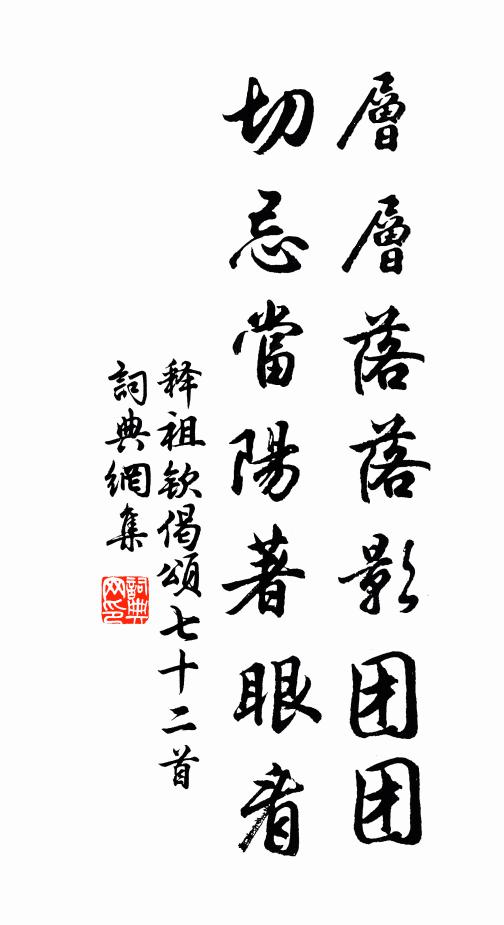 層層落落影团团
切忌當陽著眼看
释祖钦偈頌七十二首
詞典網集
詞典网印